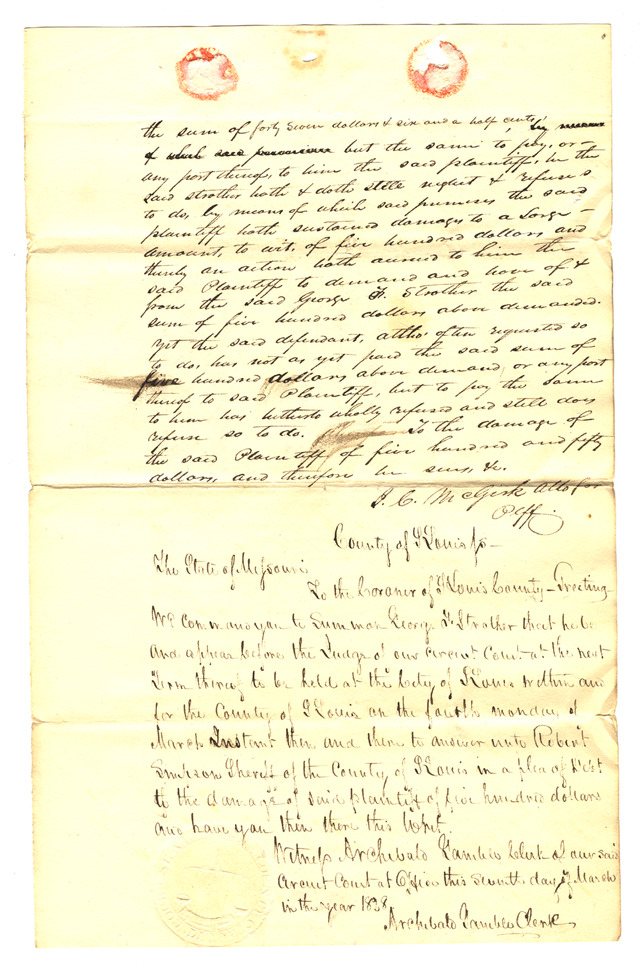 the sum of forty seven dollars & six and a half cents, by means
of which said premises but the same to pay, or
any part thereof, to him the said plaintiff, he the
said Strother hath & doth still neglect & refuses
to do, by means of which said premises the said
plaintiff hath sustained damages to a large
amount, to wit, of five hundred dollars and
thereby an action hath accrued to him the
said Plaintiff to demand and have of &
from the said George F. Strother the said
sum of five hundred dollars above demanded.
Yet the said defendant, altho: often requested so
to do, has not as yet paid the said sum of
five hundred dollars above demand, or any part
thereof to said Plaintiff, but to pay the same
to him has hitherto wholly refused and still does
refuse so to do. To the damage of
the said Plaintiff of five hundred and fifty
dollars, and therefore he sues, &c.
I. C. McGirk Atto for
Plff.
County of St Louis ss
The State of Missouri
To the Coroner of St Louis County - Greeting
We command you to Summon George F. Strother that he be
and appear before the Judge of our circuit Court at the next
Term thereof to be held at the City of St Louis within and
for the County of St Louis on the fourth monday of
March Instant then and there to answer unto Robert
Simpson Sheriff of the County of St Louis in a plea of Debt
to the damage of said plaintiff of five hundred dollars
and have you then there this Writ.
Witness Archibald Gamble Clerk of our said
Circuit Court at Office this seventh day of March
in the year 1828
Archibald Gamble Clerk